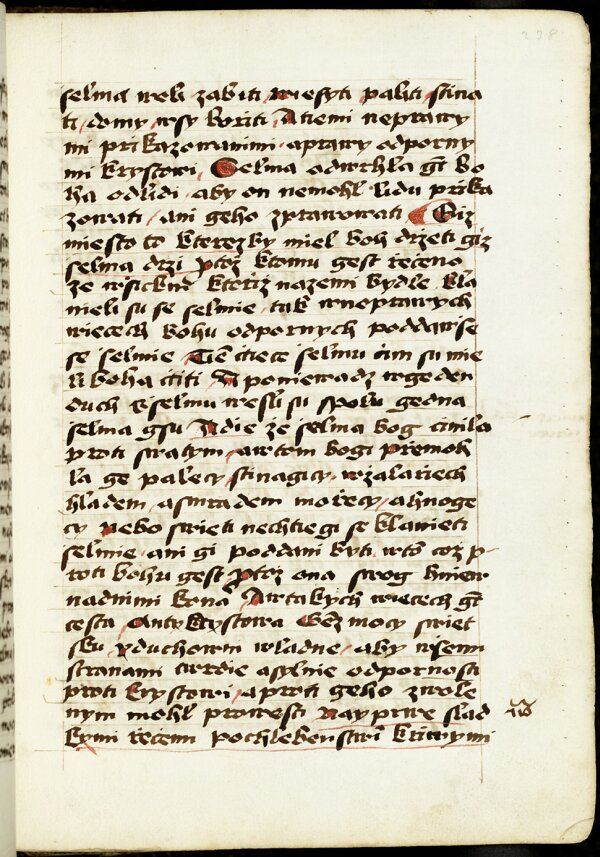 238
sselma weli zabiti wiesyti paliti stina
ti, domy wsy boriti A tiemi neprawy
mi prikazowanimi aprawy odporny
mi krystowi, Selma odwrhla gt bo
ha odlidi, aby on nemohl lidu prika
zowati, ani geho zprawowati Giz
miesto to kterezby miel boh drzeti giz
selma drzi ptz ktomu gest receno
ze wsickni kteriz nazemi bydle kla
nieli su se selmie, tak wneprawych
wiecech bohu odpornych poddawsse
se selmie Tet ctiece selmu tim su mie
li boha ctiti A poniewadz wgeden
duch sselmu wessli su spolu gedna
selma gsu Adie ze selma bog cinila
proti swatym, awtom bogi przemoh
la ge palecy, stinagicy wzalariech
hladem, asmradem morecy, ahnoge
cy nebo swieti nechtiegi se klanieti
selmie, ani gi poddani byti wto coz p
roti bohu gest ptz ona swog hniew
nadnimi kona Awtakych wiecech gt
cesta Antykrystowa Bez mocy swiet
sku yduchowni wladne, aby wssemi
stranami twrdie asylnie odpornosti
proti krystowi, aproti geho zwole
nym mohl prowesti Nayprwe slad
kymi recemi pochlebenstwi krywymi